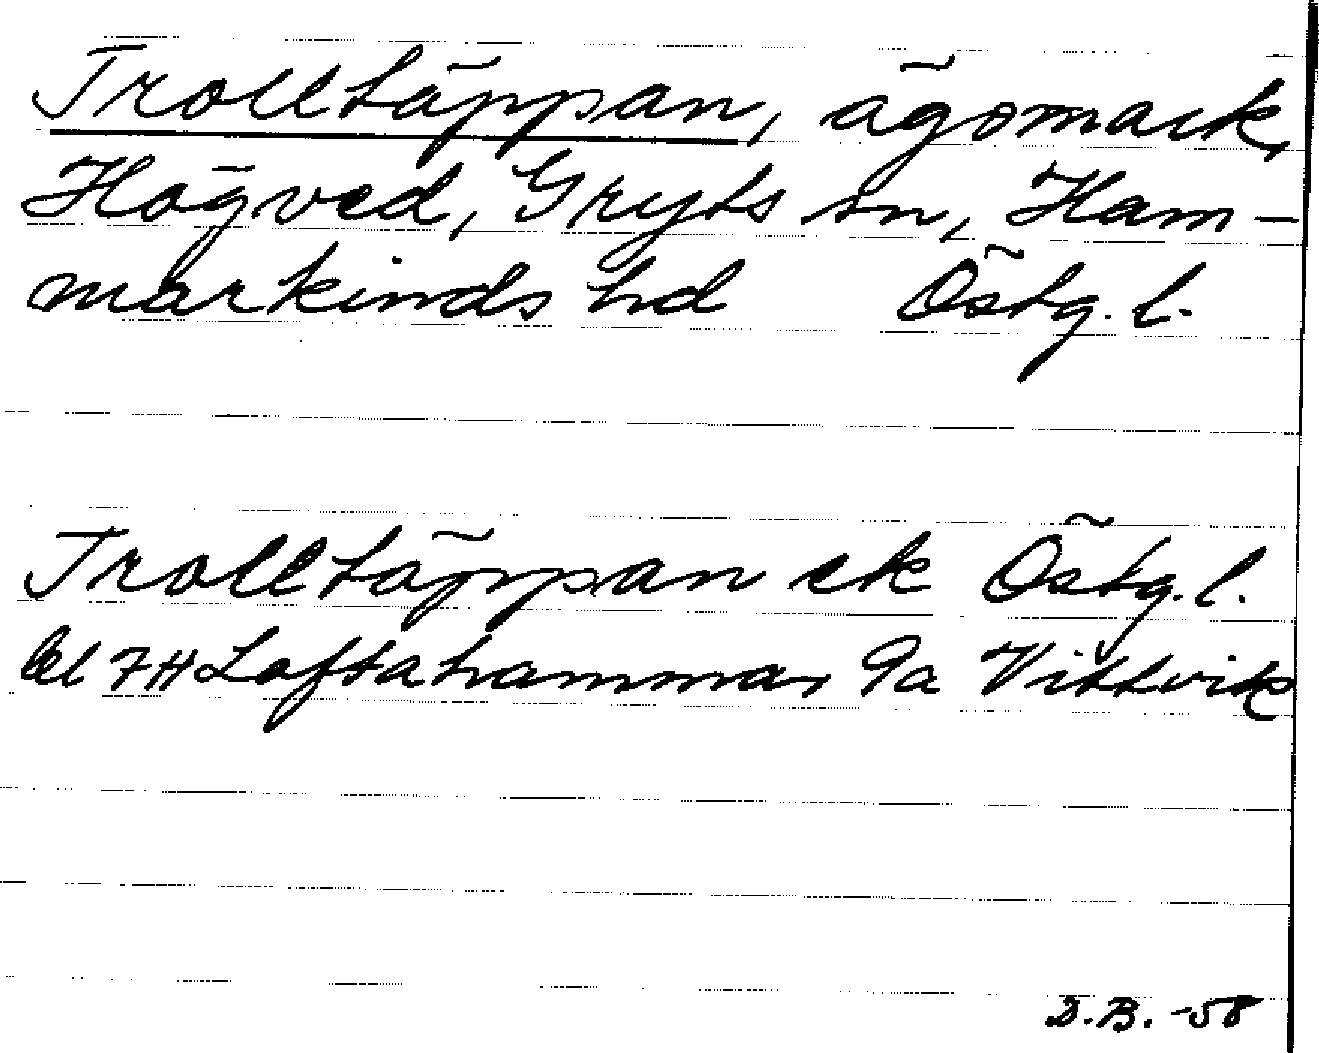 Trolltäppan, ägomark,
Högved, Gryts sn, Ham-
markinds hd Östg. l.
Trolltäppan ek Östg. l.
bl 7H Loftahammar 9a Vittvik
D.B. -58